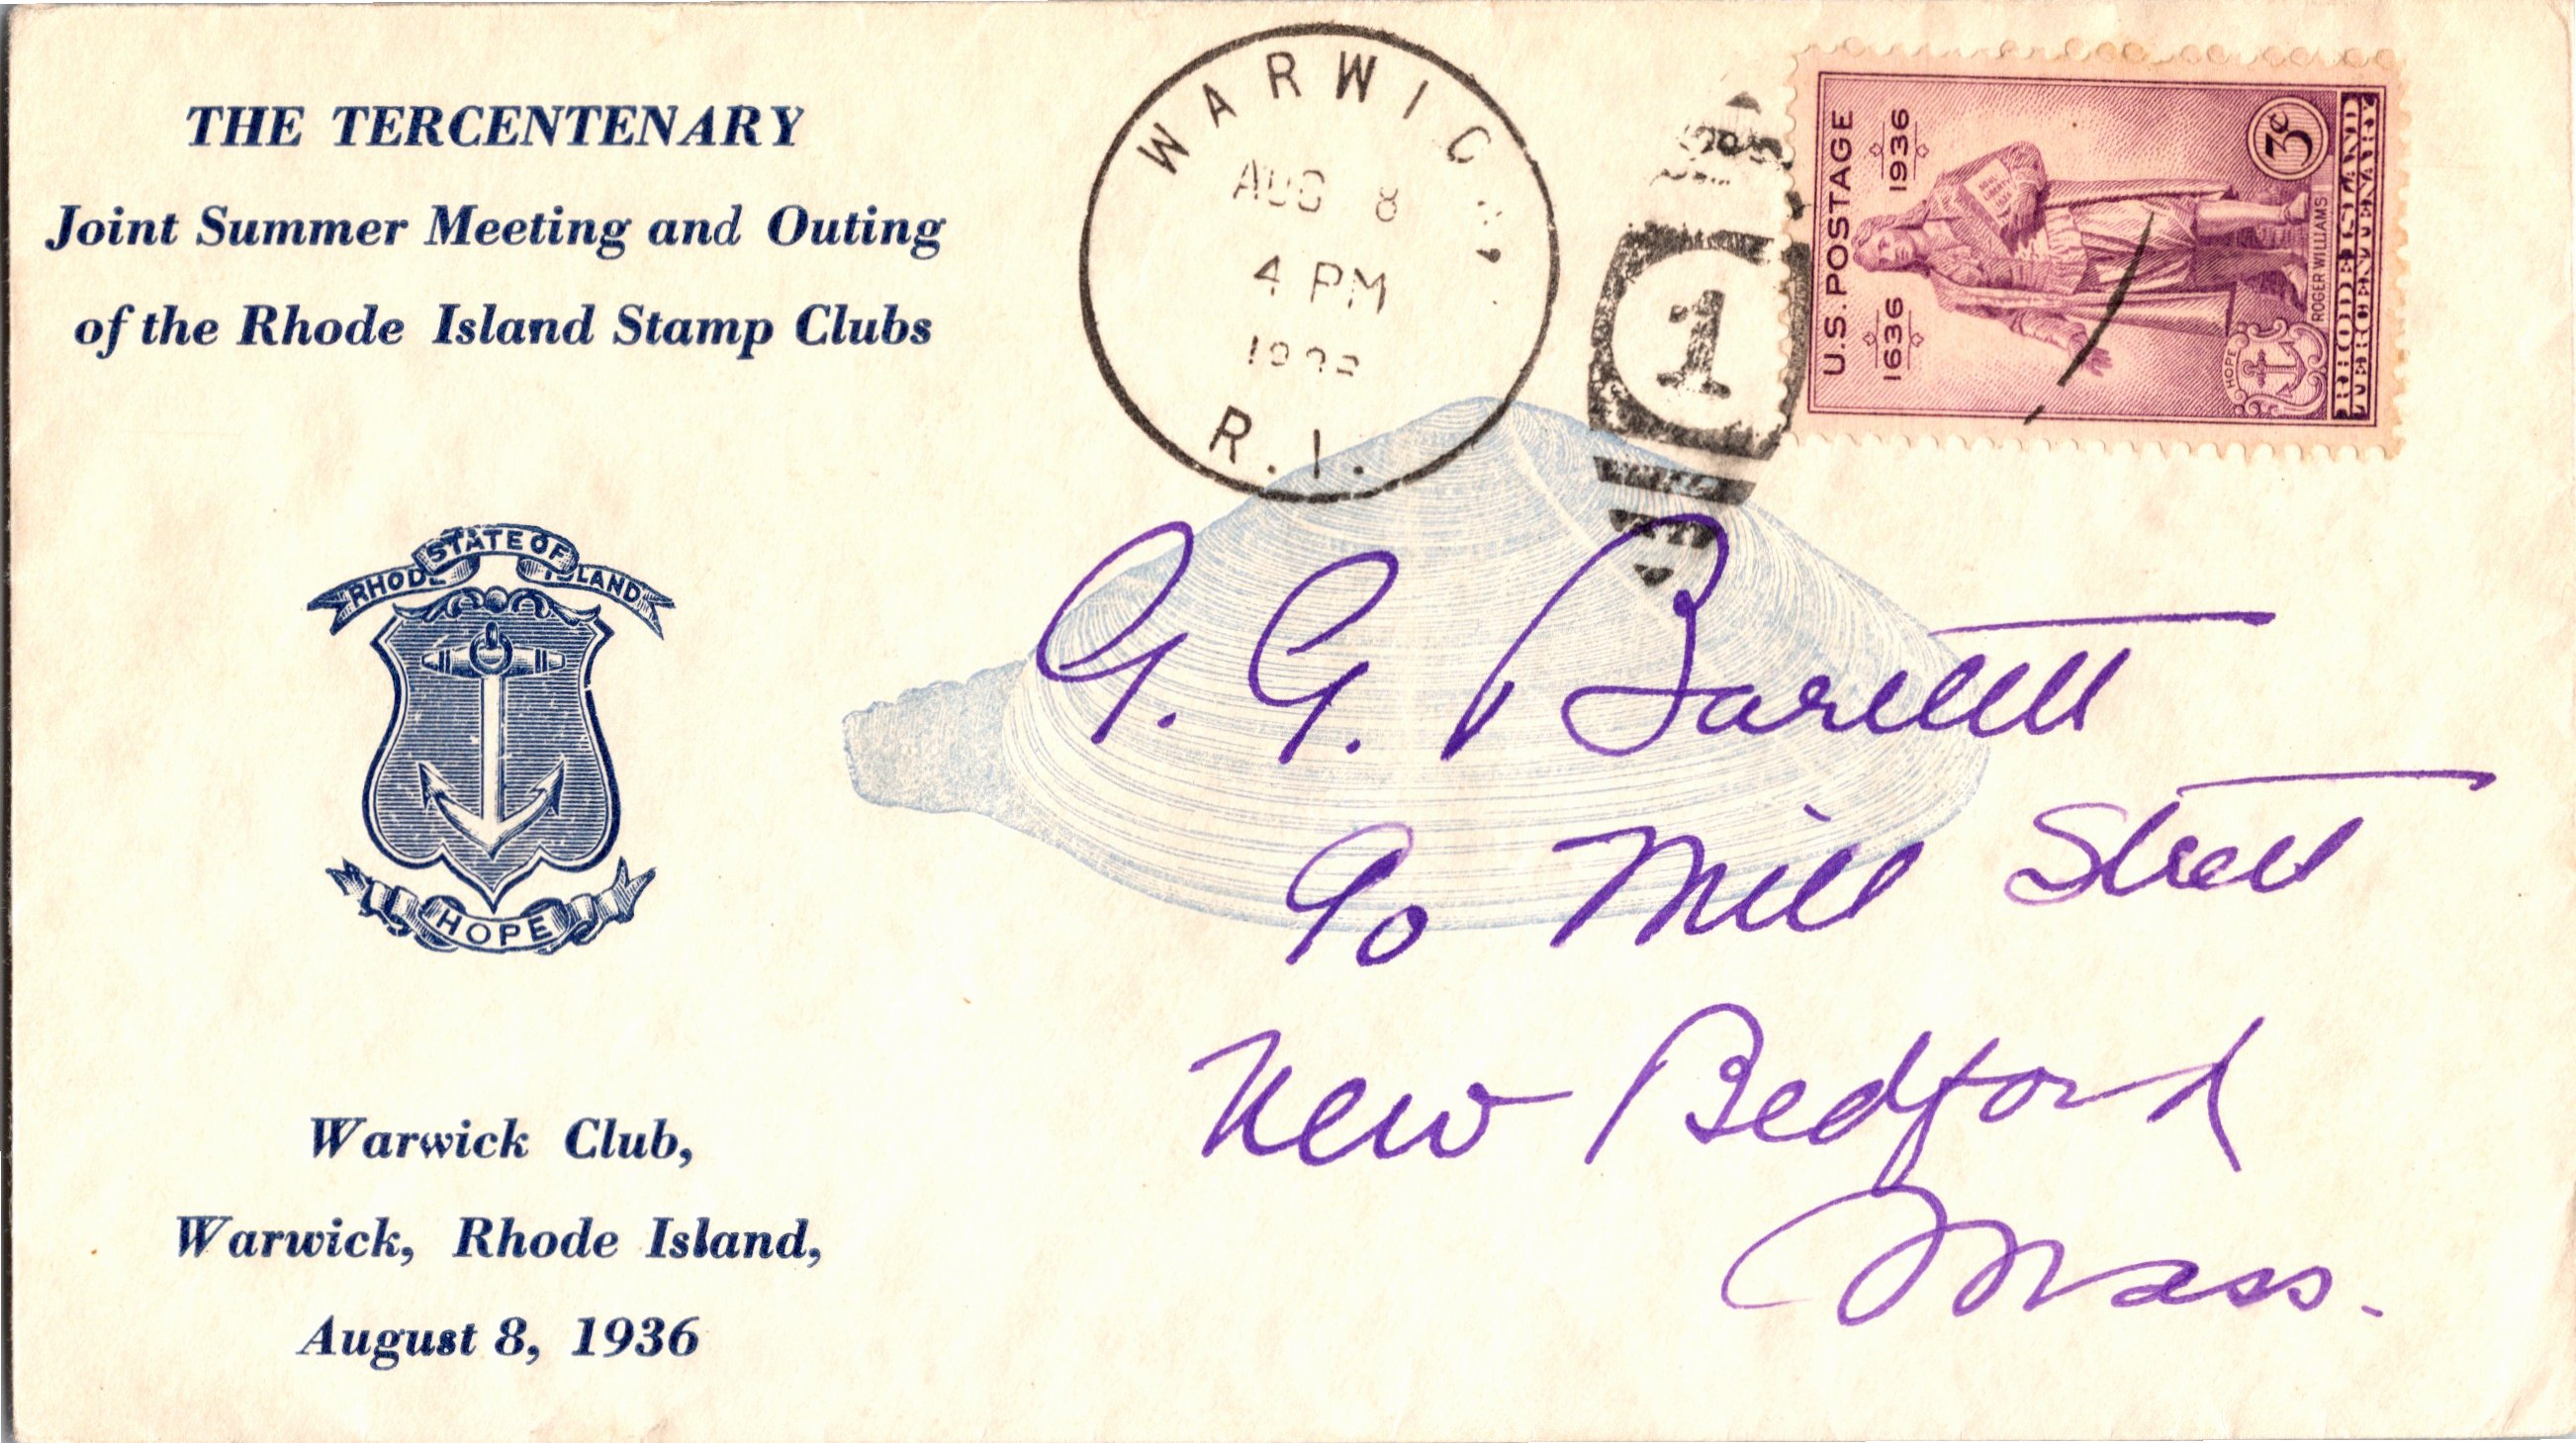 THE TERCENTENARY
Joint Summer Meeting and Outing
of the Rhode Island Stamp Clubs
STATE OF
RHODE ISLAND
HOPE
Warwick Club,
Warwick, Rhode Island,
August 8, 1936
WARWICK,
AUG 8
4 PM
R.I.
1
U.S. POSTAGE
1636 1936
3¢
HOPE
ROGER WILLIAMS
RHODE ISLAND
TERCENTENARY
G. G. Barlett
90 Mill Street
New Bedford
Mass.